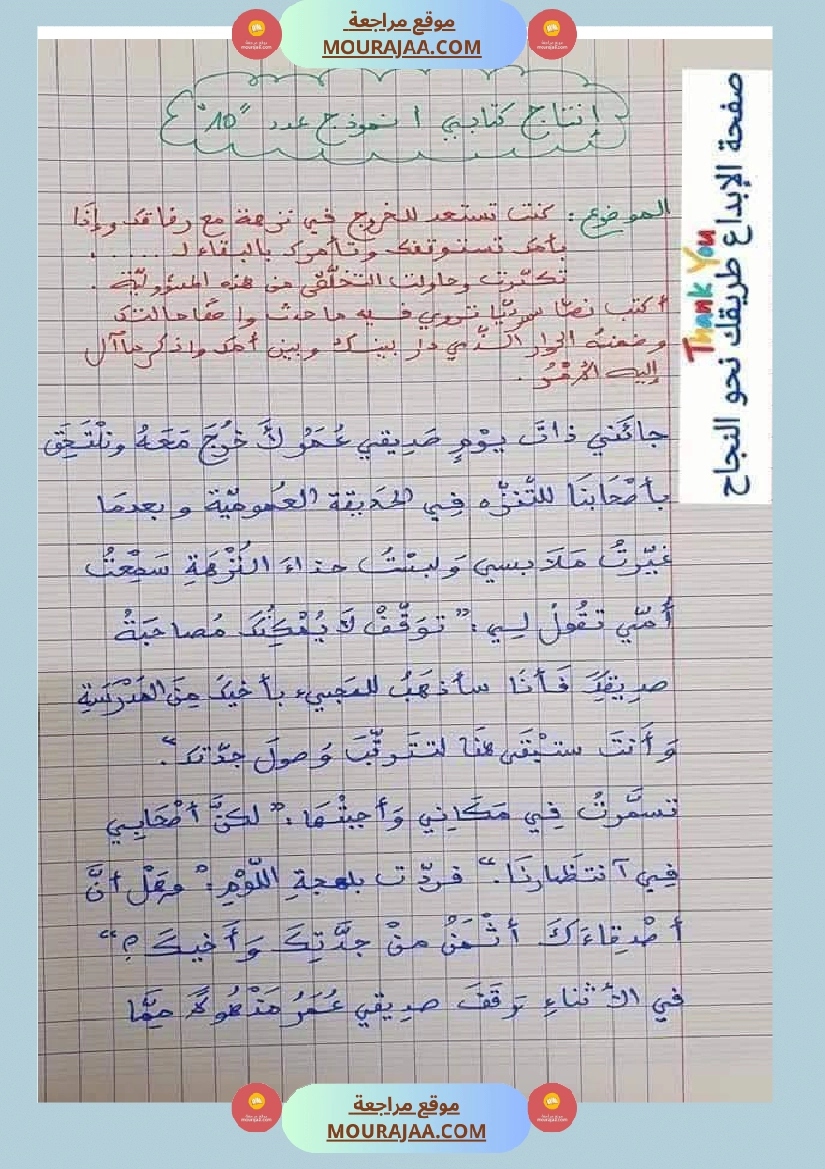 موقع مراجعة
MOURAJAA.COM
إنتاج كتابي | نموذج عدد "10"
صفحة الإبداع طريقك نحو النجاح
Thank You
الموضوع: كنت تستعد للخروج في نزهة مع رفاقك وإذا
بأمك تستوقفك وتأمرك بالبقاء لـ ......
تكدّرت وحاولت التخلّص من هذه المسؤوليّة.
أكتب نصّا سرديّا تروي فيه ما حدث واصفا حالتك
وضمنه الحوار الّذي دار بينك وبين أمك واذكر ما آل
إليه الأمْرُ.
جائَني ذاتَ يوْمٍ صَديقي عُمَرُ لأَخْرُجَ مَعَهُ ونَلْتَحِقَ
بأصْحَابِنَا للتّنزّه فِي الحَديقة العُموميّة وبعدمَا
غيّرتُ مَلاَبسي وَلبسْتُ حذاءَ النُزْهَةِ سَمِعْتُ
أُمّي تقُولُ لِي: "توَقّفْ لاَ يُمْكِنُكَ مُصاحَبَةُ
صدِيقِكَ فَأنَا سأذهَبُ للمَجيء بأخيكَ مِنَ المَدْرَسَةِ
وَأنتَ ستبْقَى هُنَا لتتَرقّبَ وُصولَ جدّتك".
تسمَّرتُ فِي مَكَانِي وَأجبْتُهَا: "لكنَّ أصْحَابِي
فِي آنتظَارِنَا." فردّت بلهجةِ اللّوْمِ: "وهَلْ أنَّ
أصْدِقاءَكَ أثْمَنُ منْ جدَّتِكَ وَأَخيكَ ؟"
في الأثناءِ توَقفَ صديقي عُمَرُ مَذْهُولاً ممَّا
موقع مراجعة
MOURAJAA.COM